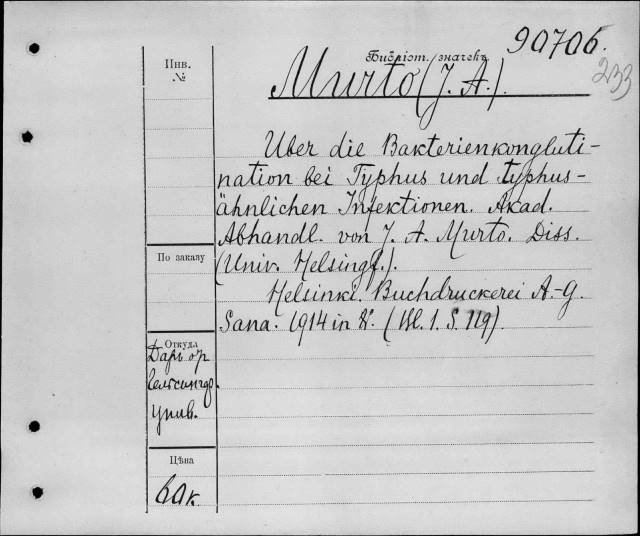 90706.
233
Инв.
№
Библіот. значекъ
Murto (J. A.).
Uber die Bakterienkongluti-
nation bei Typhus und typhus-
ähnlichen Infektionen. Akad.
Abhandl. von J. A. Murto. Diss.
(Univ. Helsingf.).
По заказу
Helsinki. Buchdruckerei A.-G.
Sana. 1914 in 8. (Bl. 1. S. 119).
Откуда
Даръ отъ
Гельсингф.
унив.
Цѣна
60 к.